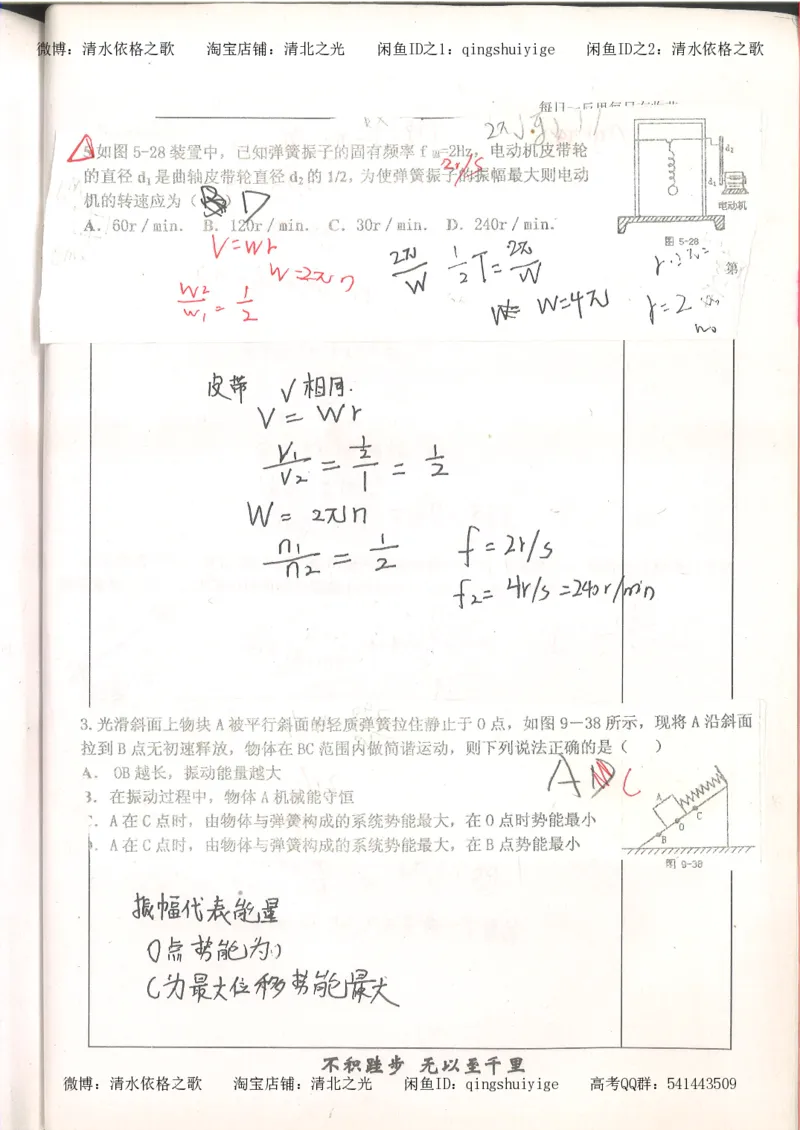 微博：清水依格之歌 淘宝店铺：清北之光 闲鱼ID之1：qingshuiyige 闲鱼ID之2：清水依格之歌
如图5-28装置中，已知弹簧振子的固有频率f固=2Hz，电动机皮带轮
2r/s
的直径d₁是曲轴皮带轮直径d₂的1/2，为使弹簧振子的振幅最大则电动
机的转速应为（ B ） D
A. 60r/min. B. 120r/min. C. 30r/min. D. 240r/min.
d₂
d₁
电动机
图 5-28
第
V=Wr
W=2πn
W₂/W₁=1/2
2π/W
1/2T=2π/W
W=4π
r=2
皮带 V相同.
V=Wr
V₁/V₂=½/1=1/2
W=2πn
n₁/n₂=1/2
f=2r/s
f₂=4r/s=240r/min
3.光滑斜面上物块A被平行斜面的轻质弹簧拉住静止于O点，如图9-38所示，现将A沿斜面
拉到B点无初速释放，物体在BC范围内做简谐运动，则下列说法正确的是（ ）
A. OB越长，振动能量越大
B. 在振动过程中，物体A机械能守恒
C. A在C点时，由物体与弹簧构成的系统势能最大，在O点时势能最小
D. A在C点时，由物体与弹簧构成的系统势能最大，在B点势能最小
A C
A
B
O
C
图 9-38
振幅代表能量
O点势能为0
C为最大位移势能最大
不积跬步 无以至千里
微博：清水依格之歌 淘宝店铺：清北之光 闲鱼ID：qingshuiyige 高考QQ群：541443509